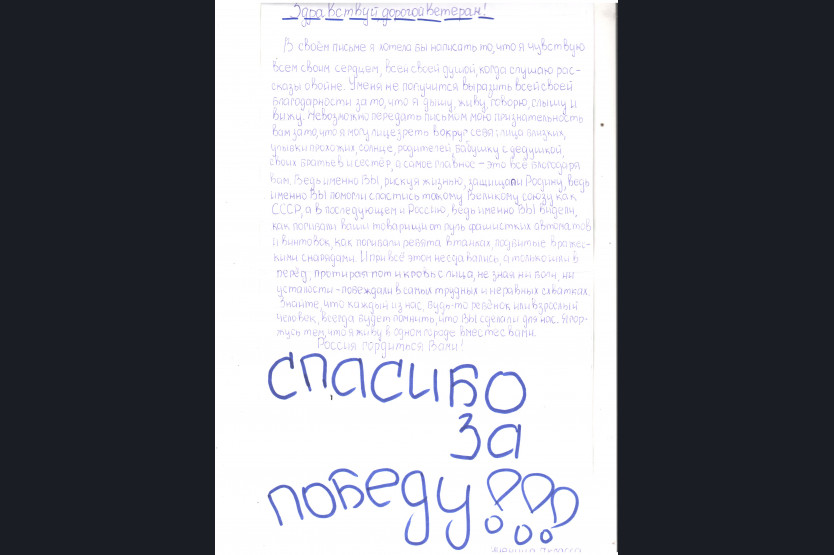 Здравствуй дорогой ветеран!
В своём письме я хотела бы написать то, что я чувствую
всем своим сердцем, всей своей душой, когда слушаю рас-
сказы о войне. У меня не получится выразить всей своей
благодарности за то, что я дышу, живу, говорю, слышу и
вижу. Невозможно передать письмом мою признательность
вам за то, что я могу лицезреть вокруг себя: лица близких,
улыбки прохожих, солнце, родителей, бабушку с дедушкой,
своих братьев и сестёр, а самое главное - это всё благодаря
вам. Ведь именно ВЫ, рискуя жизнью, защищали Родину, ведь
именно ВЫ помогли спастись такому Великому союзу как
СССР, а в последующем и Россию, ведь именно ВЫ видели,
как погибали ваши товарищи от пуль фашистких автоматов
и винтовок, как погибали ребята в танках, подбитые вражес-
кими снарядами. И при всё этом не сдавались, а только шли в
перёд, протирая пот и кровь с лица, не зная ни боли, ни
усталости - побеждали в самых трудных и неравных схватках.
Знайте, что каждый из нас, будь-то ребёнок или взрослый
человек, всегда будет помнить, что ВЫ сделали для нас. Я гор-
жусь тем, что я живу в одном городе вместе с вами.
Россия гордиться Вами!
спасибо
за
победу!!!
ученица 7 класса